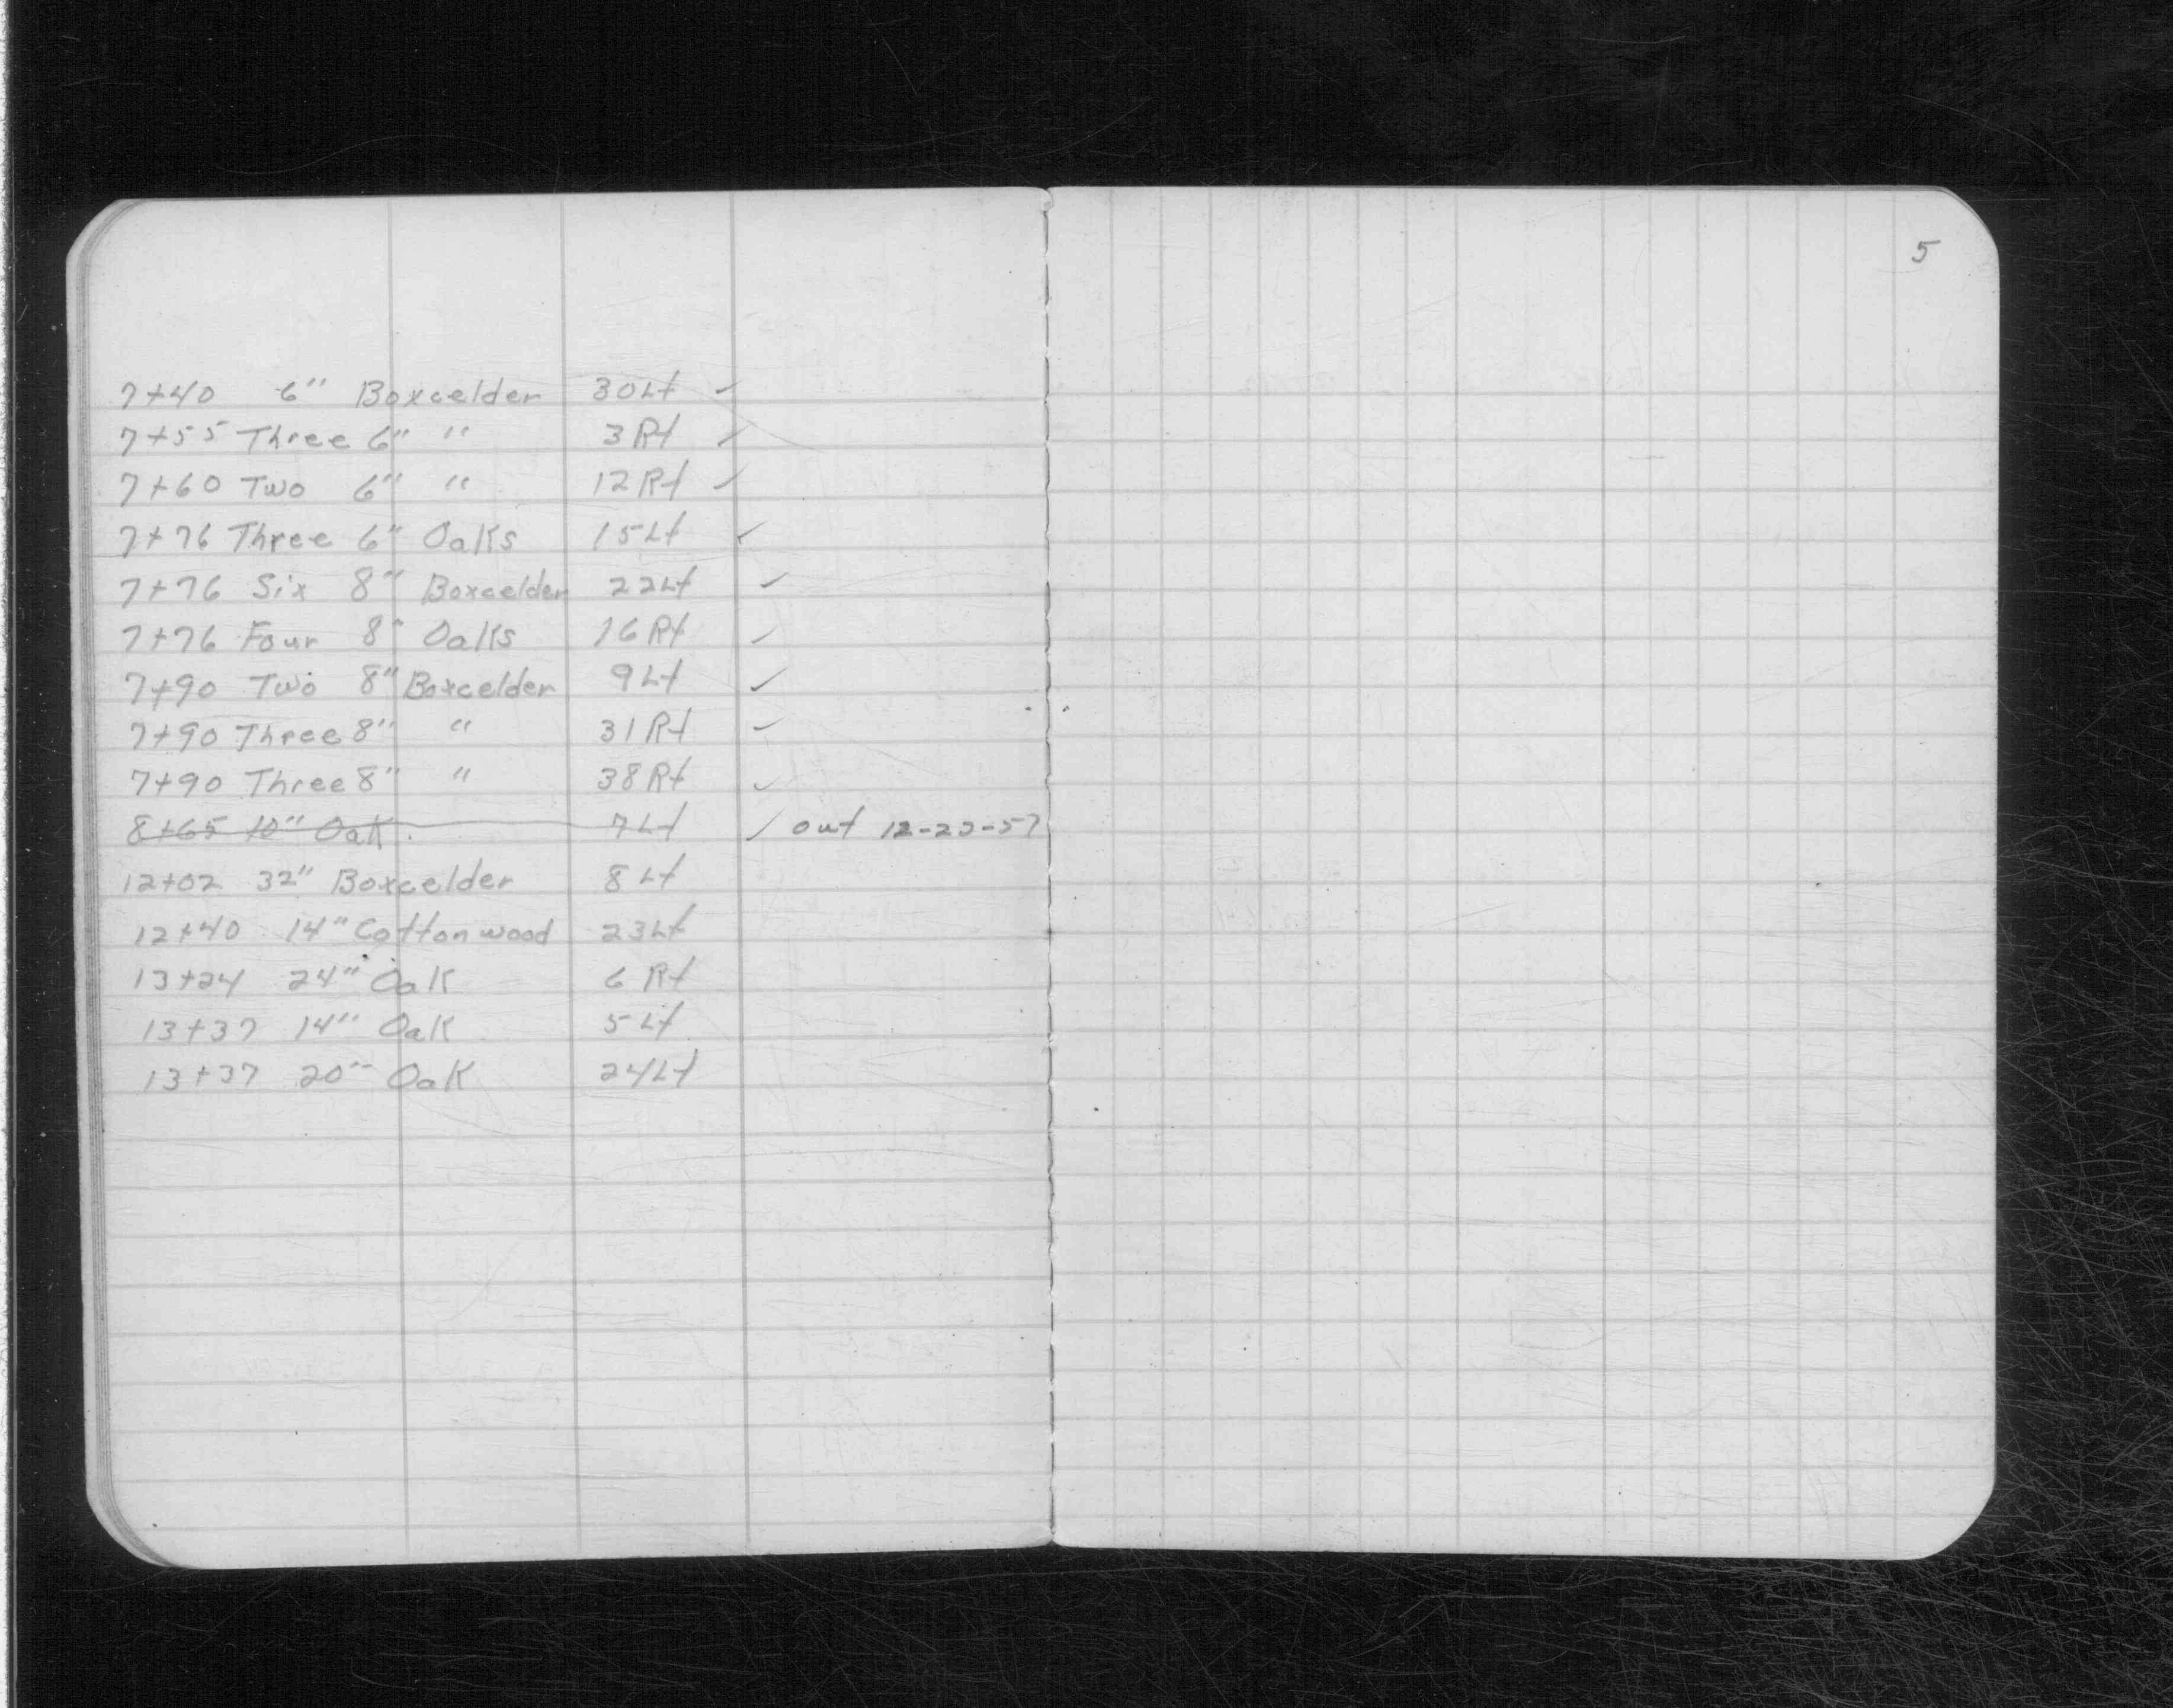 7+40 6" Boxcelder 30Lt ✓
7+55 Three 6" " 3 Rt ✓
7+60 Two 6" " 12 Rt ✓
7+76 Three 6" Oaks 15Lt ✓
7+76 Six 8" Boxcelder 22Lt ✓
7+76 Four 8" Oaks 16 Rt ✓
7+90 Two 8" Boxcelder 9 Lt ✓
7+90 Three 8" " 31 Rt ✓
7+90 Three 8" " 38 Rt ✓
8+65 10" Oak 7Lt ✓ out
12+02 32" Boxcelder 8 Lt
12+40 14" Cottonwood 23Lt
13+24 24" Oak 6 Rt
13+37 14" Oak 5 Lt
13+37 20" Oak 24Lt
5